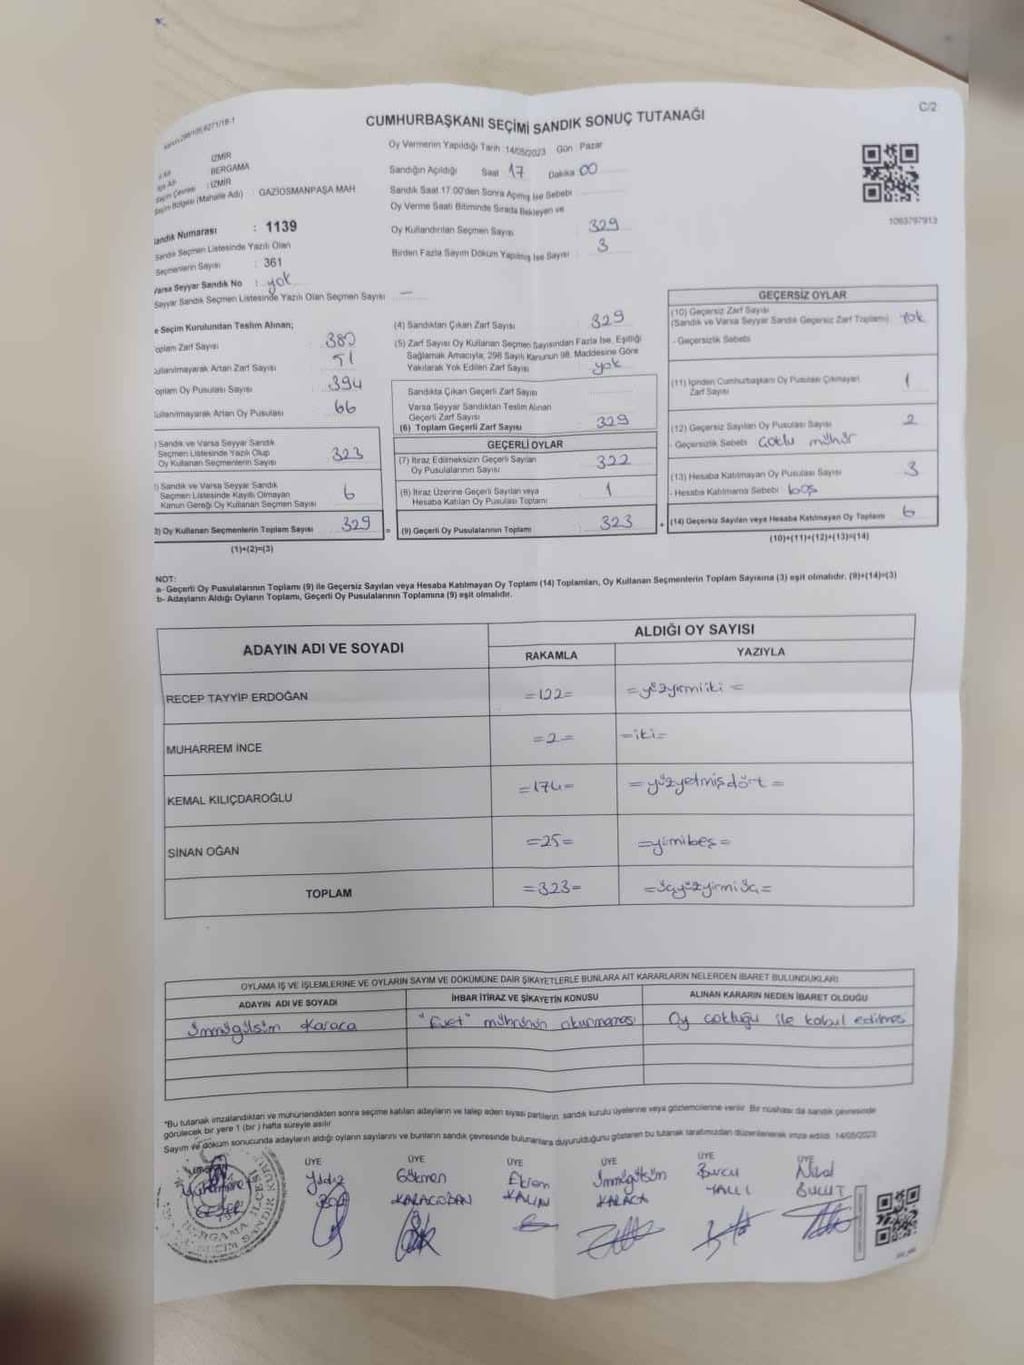 C/2
CUMHURBAŞKANI SEÇİMİ SANDIK SONUÇ TUTANAĞI
Oy Vermenin Yapıldığı Tarih 14/05/2023 Gün Pazar
İZMİR
BERGAMA
Seçim Çevresi : İZMİR
Seçim Bölgesi (Mahalle Adı) : GAZİOSMANPAŞA MAH
Sandığın Açıldığı Saat 17 Dakika 00
Sandık Saat 17.00'den Sonra Açılmış İse Sebebi
Oy Verme Saati Bitiminde Sırada Bekleyen ve
Oy Kullandırılan Seçmen Sayısı 329
Birden Fazla Sayım Döküm Yapılmış İse Sayısı 3
1063797913
Sandık Numarası : 1139
Sandık Seçmen Listesinde Yazılı Olan
Seçmenlerin Sayısı : 361
Varsa Seyyar Sandık No : yok
Seyyar Sandık Seçmen Listesinde Yazılı Olan Seçmen Sayısı —
e Seçim Kurulundan Teslim Alınan;
oplam Zarf Sayısı 380
ullanılmayarak Artan Zarf Sayısı 51
oplam Oy Pusulası Sayısı 394
ullanılmayarak Artan Oy Pusulası 66
) Sandık ve Varsa Seyyar Sandık
Seçmen Listesinde Yazılı Olup
Oy Kullanan Seçmenlerin Sayısı 323
) Sandık ve Varsa Seyyar Sandık
Seçmen Listesinde Kayıtlı Olmayan
Kanun Gereği Oy Kullanan Seçmen Sayısı 6
3) Oy Kullanan Seçmenlerin Toplam Sayısı 329
(1)+(2)=(3)
(4) Sandıktan Çıkan Zarf Sayısı 329
(5) Zarf Sayısı Oy Kullanan Seçmen Sayısından Fazla İse, Eşitliği
Sağlamak Amacıyla, 298 Sayılı Kanunun 98. Maddesine Göre
Yakılarak Yok Edilen Zarf Sayısı yok
Sandıkta Çıkan Geçerli Zarf Sayısı
Varsa Seyyar Sandıktan Teslim Alınan
Geçerli Zarf Sayısı
(6) Toplam Geçerli Zarf Sayısı 329
GEÇERLİ OYLAR
(7) İtiraz Edilmeksizin Geçerli Sayılan
Oy Pusulalarının Sayısı 322
(8) İtiraz Üzerine Geçerli Sayılan veya
Hesaba Katılan Oy Pusulası Toplamı 1
= (9) Geçerli Oy Pusulalarının Toplamı 323
GEÇERSİZ OYLAR
(10) Geçersiz Zarf Sayısı
(Sandık ve Varsa Seyyar Sandık Geçersiz Zarf Toplamı) Yok
- Geçersizlik Sebebi
(11) İçinden Cumhurbaşkanı Oy Pusulası Çıkmayan
Zarf Sayısı 1
(12) Geçersiz Sayılan Oy Pusulası Sayısı 2
- Geçersizlik Sebebi Çoklu mühür
(13) Hesaba Katılmayan Oy Pusulası Sayısı 3
- Hesaba Katılmama Sebebi boş
+ (14) Geçersiz Sayılan veya Hesaba Katılmayan Oy Toplamı 6
(10)+(11)+(12)+(13)=(14)
NOT:
a- Geçerli Oy Pusulalarının Toplamı (9) ile Geçersiz Sayılan veya Hesaba Katılmayan Oy Toplamı (14) Toplamları, Oy Kullanan Seçmenlerin Toplam Sayısına (3) eşit olmalıdır. (9)+(14)=(3)
b- Adayların Aldığı Oyların Toplamı, Geçerli Oy Pusulalarının Toplamına (9) eşit olmalıdır.
ADAYIN ADI VE SOYADI
ALDIĞI OY SAYISI
RAKAMLA YAZIYLA
RECEP TAYYİP ERDOĞAN =122= =yüzyirmiiki =
MUHARREM İNCE =2= =iki=
KEMAL KILIÇDAROĞLU =174= =yüzyetmişdört =
SİNAN OĞAN =25= =yirmibeş =
TOPLAM =323= =üçyüzyirmiüç=
OYLAMA İŞ VE İŞLEMLERİNE VE OYLARIN SAYIM VE DÖKÜMÜNE DAİR ŞİKAYETLERLE BUNLARA AİT KARARLARIN NELERDEN İBARET BULUNDUKLARI
ADAYIN ADI VE SOYADI İHBAR İTİRAZ VE ŞİKAYETİN KONUSU ALINAN KARARIN NEDEN İBARET OLDUĞU
Ümmügülsüm Karaca "Evet" mührünün okunmaması Oy çokluğu ile kabul edilmesi
"Bu tutanak imzalandıktan ve mühürlendikten sonra seçime katılan adayların ve talep eden siyasi partilerin, sandık kurulu üyelerine veya gözlemcilerine verilir. Bir nüshası da sandık çevresinde
görülecek bir yere 1 (bir) hafta süreyle asılır.
Sayım ve döküm sonucunda adayların aldığı oyların sayılarını ve bunların sandık çevresinde bulunanlara duyurulduğunu gösteren bu tutanak tarafımızdan düzenlenerek imza edildi. 14/05/2023
ÜYE ÜYE ÜYE ÜYE ÜYE ÜYE
Yıldız Gökmen Ekrem Ümmügülsüm Burcu Nihal
KARAÇOBAN KALIN KARACA YALLI BULUT